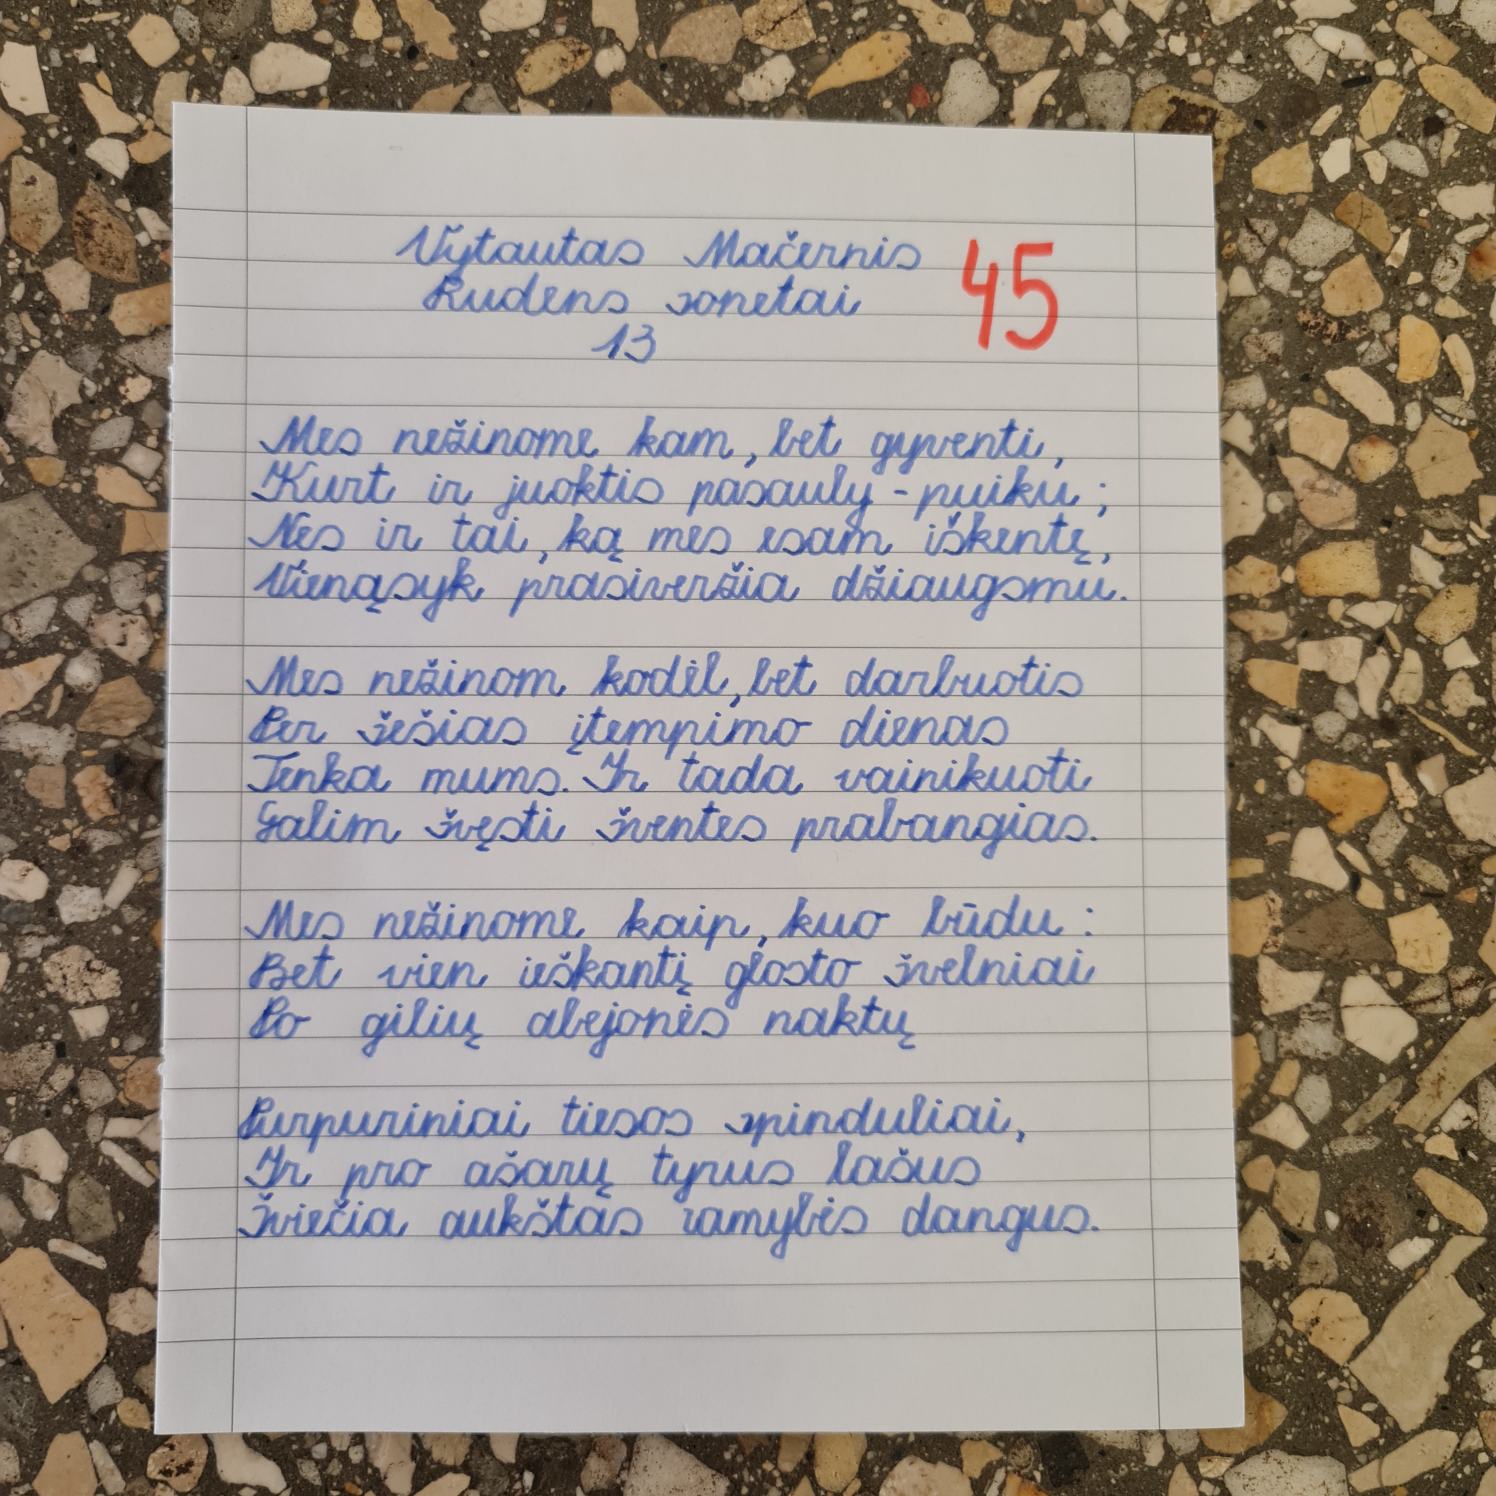 Vytautas Mačernis 45
Rudens sonetai
13
Mes nežinome kam, bet gyventi,
Kurt ir juoktis pasauly - puiku;
Nes ir tai, ką mes esam iškentę,
Vienąsyk prasiveržia džiaugsmu.
Mes nežinom kodėl, bet darbuotis
Per šešias įtempimo dienas
Tenka mums. Ir tada vainikuoti
Galim švęsti šventes prabangias.
Mes nežinome kaip, kuo būdu:
Bet vien ieškantį glosto švelniai
Po gilių abejonės naktų
Purpuriniai tiesos spinduliai,
Ir pro ašarų tyrus lašus
Šviečia aukštas ramybės dangus.